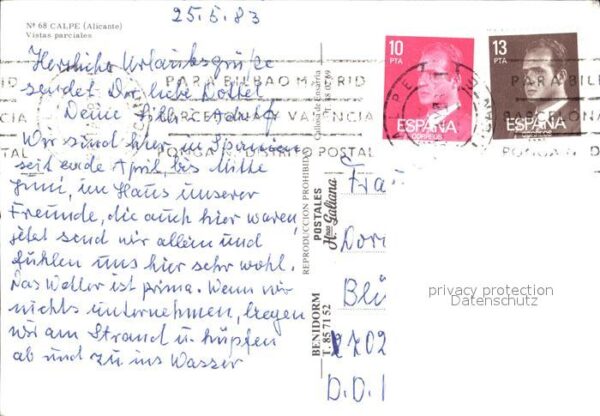 25.5.83
Nº 68 CALPE (Alicante)
Vistas parciales
Herzliche Urlaubsgrüße
sendet Dir, liebe
Deine
Wir sind hier in Spanien
seit ende April, bis Mitte
Juni, im Haus unserer
Freunde, die auch hier waren,
jetzt send wir allein und
fühlen uns hier sehr wohl.
Das Wetter ist prima. Wenn wir
nichts unternehmen, liegen
wir am Strand u. hüpfen
ab und zu ins Wasser
REPRODUCCION PROHIBIDO
POSTALES
Hnos Galiana
BENIDORM
T. 85 71 52
10
PTA
ESPAÑA
CORREOS
13
PTA
ESPAÑA
PARA BILBAO MADRID
BARCELONA VALENCIA
PONGA N. DISTRITO POSTAL
PARA BIL
PONGA N
Frau
Dor
Blü
2702
D.D.
privacy protection
Datenschutz